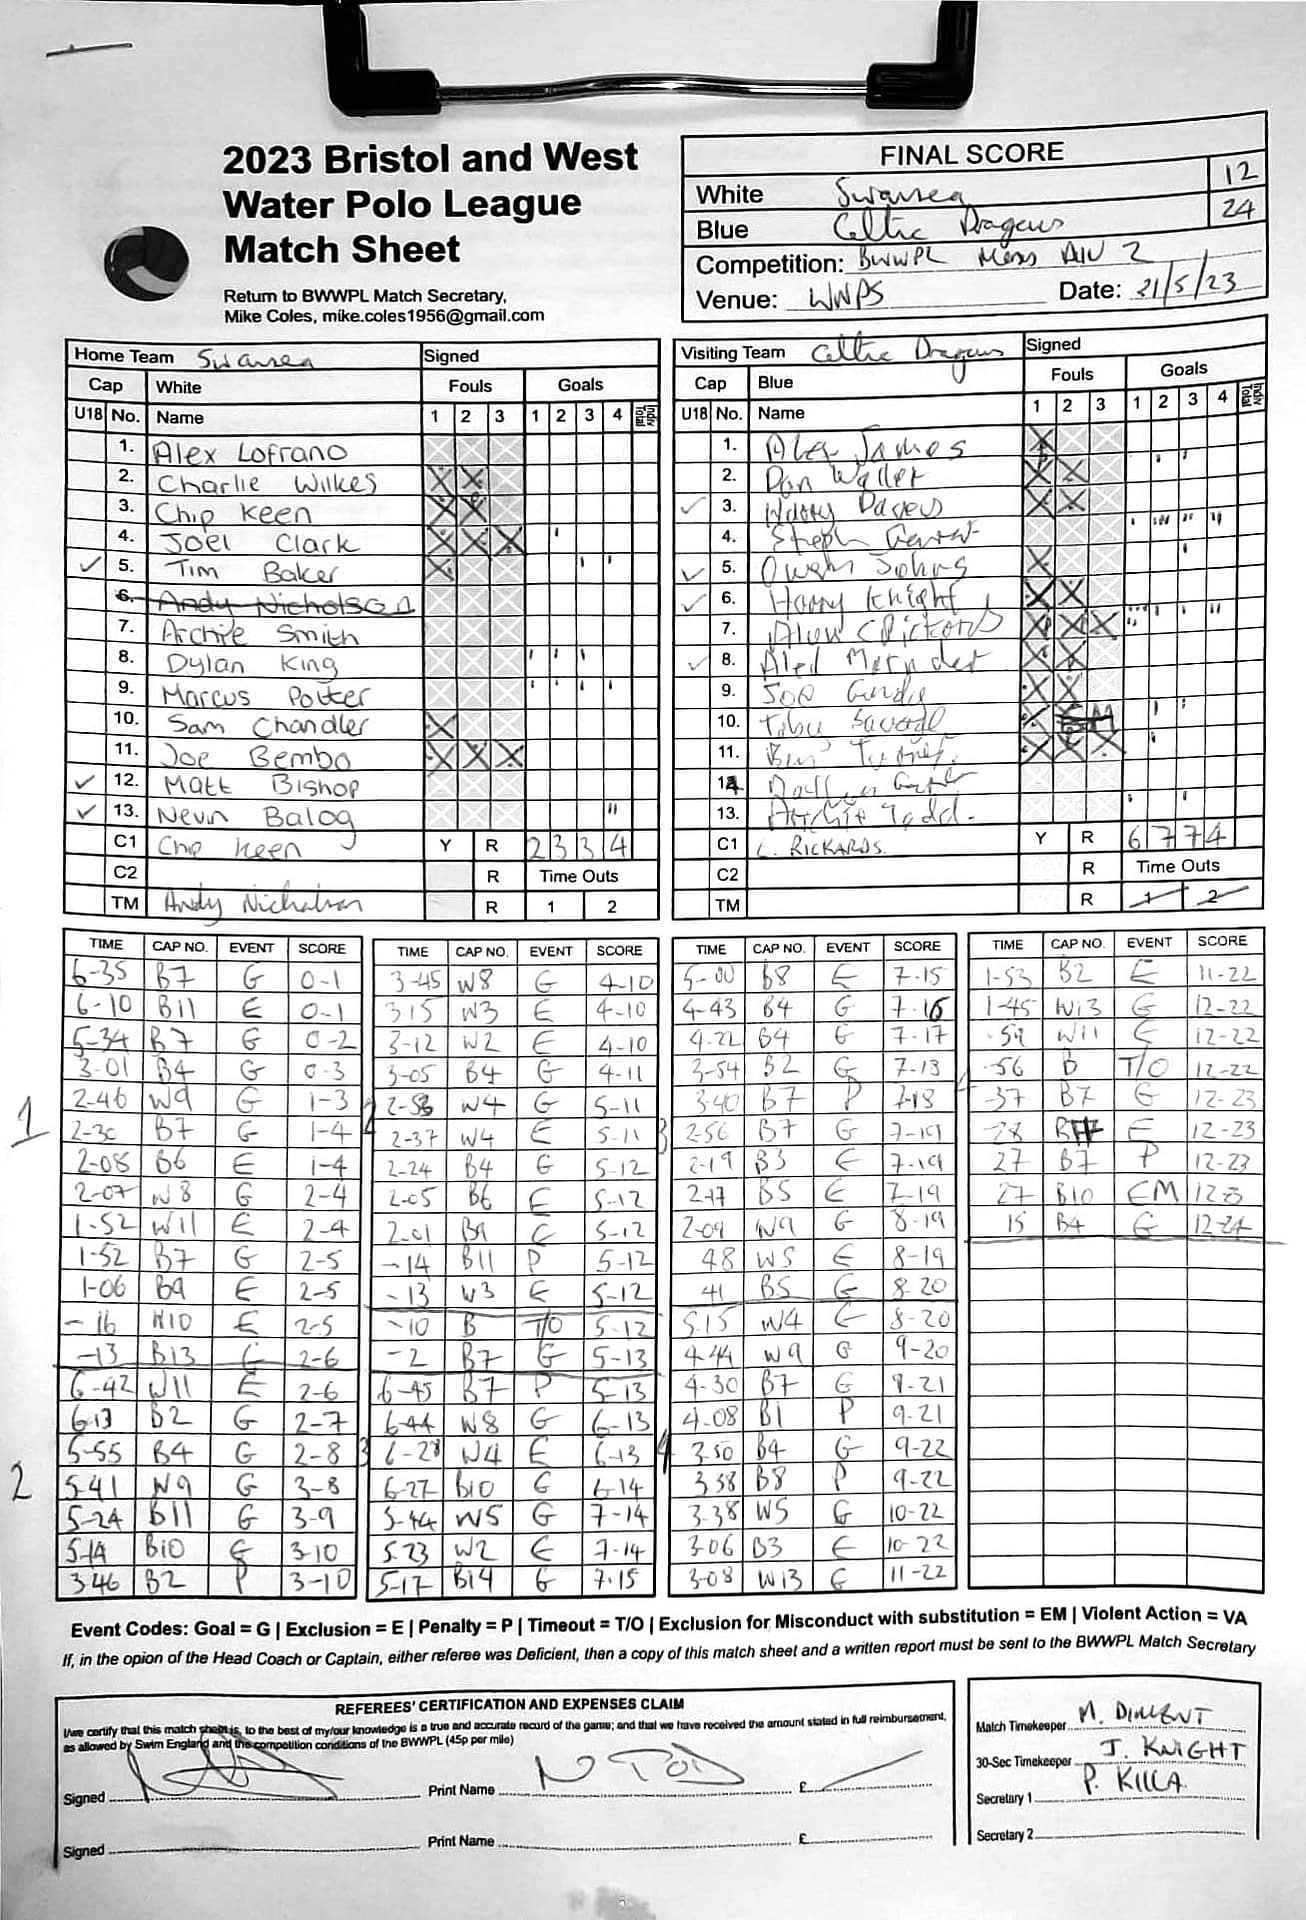 2023 Bristol and West
Water Polo League
Match Sheet
Return to BWWPL Match Secretary,
Mike Coles, mike.coles1956@gmail.com
FINAL SCORE
White Swansea 12
Blue Celtic Dragons 24
Competition: BWWPL Mens DIV 2
Venue: WNPS Date: 21/5/23
Home Team Swansea Signed
Cap White Fouls Goals
U18 No. Name 1 2 3 1 2 3 4 Indiv Total
1. Alex Lofrano
2. Charlie Wilkes
3. Chip Keen
4. Joel Clark
5. Tim Baker
6. Andy Nicholson
7. Archie Smith
8. Dylan King
9. Marcus Potter
10. Sam Chandler
11. Joe Bembo
12. Matt Bishop
13. Nevin Balog
C1 Chip Keen Y R 2 3 3 4
C2 R Time Outs
TM Andy Nicholson R 1 2
Visiting Team Celtic Dragons Signed
Cap Blue Fouls Goals
U18 No. Name 1 2 3 1 2 3 4 Indiv Total
1. Alex James
2. Dan Waller
3. Harry Davies
4. Steph
5. Owain Johns
6. Harry Knight
7. Alun Rickards
8. Aled
9. Joe
10.
11. Ben
14.
13. Archie Todd.
C1 L. RICKARDS. Y R 6 7 7 4
C2 R Time Outs
TM R 1 2
TIME CAP NO. EVENT SCORE
6-35 B7 G 0-1
6-10 B11 E 0-1
5-34 B7 G 0-2
3-01 B4 G 0-3
2-46 W9 G 1-3
1 2-30 B7 G 1-4
2-08 B6 E 1-4
2-07 W8 G 2-4
1-52 W11 E 2-4
1-52 B7 G 2-5
1-06 B9 E 2-5
-16 W10 E 2-5
-13 B13 G 2-6
6-42 W11 E 2-6
6-13 B2 G 2-7
5-55 B4 G 2-8
2 5-41 W9 G 3-8
5-24 B11 G 3-9
5-14 B10 G 3-10
3-46 B2 P 3-10
TIME CAP NO. EVENT SCORE
3-45 W8 G 4-10
3-15 W3 E 4-10
3-12 W2 E 4-10
3-05 B4 G 4-11
2 2-58 W4 G 5-11
2-37 W4 E 5-11
2-24 B4 G 5-12
2-05 B6 E 5-12
2-01 B9 E 5-12
-14 B11 P 5-12
-13 W3 E 5-12
-10 B T/O 5-12
-2 B7 G 5-13
6-45 B7 P 5-13
6-44 W8 G 6-13
3 6-28 W4 E 6-13
6-27 B10 G 6-14
5-44 W5 G 7-14
5-23 W2 E 7-14
5-17 B14 G 7-15
TIME CAP NO. EVENT SCORE
5-00 B8 E 7-15
4-43 B4 G 7-16
4-22 B4 G 7-17
3-54 B2 G 7-18
3-40 B7 P 7-18
3 2-56 B7 G 7-19
2-19 B3 E 7-19
2-17 B5 E 7-19
2-09 W9 G 8-19
48 W5 E 8-19
41 B5 G 8-20
5-15 W4 E 8-20
4-44 W9 G 9-20
4-30 B7 G 9-21
4-08 B1 P 9-21
4 3-50 B4 G 9-22
3-38 B8 P 9-22
3-38 W5 G 10-22
3-06 B3 E 10-22
3-08 W13 G 11-22
TIME CAP NO. EVENT SCORE
1-53 B2 E 11-22
1-45 W13 G 12-22
-59 W11 E 12-22
-56 B T/O 12-22
-37 B7 G 12-23
-28 E 12-23
27 B7 P 12-23
27 B10 EM
15 B4 G 12-24
Event Codes: Goal = G | Exclusion = E | Penalty = P | Timeout = T/O | Exclusion for Misconduct with substitution = EM | Violent Action = VA
If, in the opion of the Head Coach or Captain, either referee was Deficient, then a copy of this match sheet and a written report must be sent to the BWWPL Match Secretary
REFEREES' CERTIFICATION AND EXPENSES CLAIM
I/we certify that this match sheet is, to the best of my/our knowledge is a true and accurate record of the game; and that we have received the amount stated in full reimbursement,
as allowed by Swim England and the competition conditions of the BWWPL (45p per mile)
Signed Print Name N TODD £
Signed Print Name £
Match Timekeeper M. DIMENT
30-Sec Timekeeper J. KNIGHT
Secretary 1 P. KILLA
Secretary 2